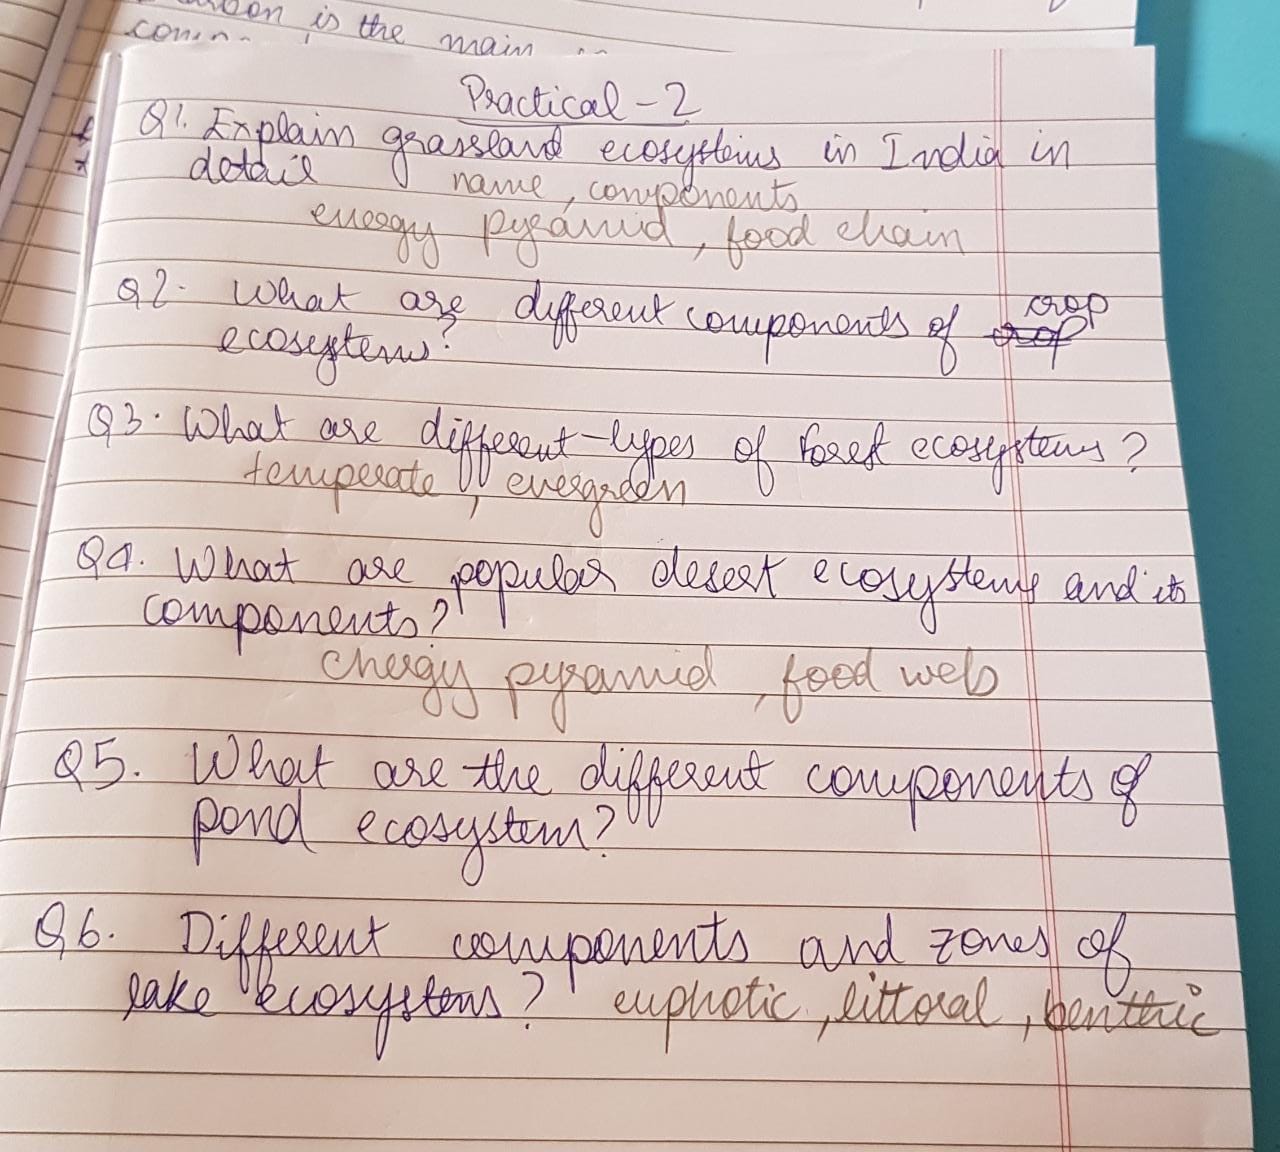 is the main
Practical - 2
Q1. Explain grassland ecosystems in India in
detail name, components
energy pyramid, food chain
Q2. What are different components of crop
ecosystem?
Q3. What are different types of forest ecosystems?
temperate, evergreen
Q4. What are popular desert ecosystems and its
components?
energy pyramid, food web
Q5. What are the different components of
pond ecosystem?
Q6. Different components and zones of
lake ecosystems? euphotic, littoral, benthic